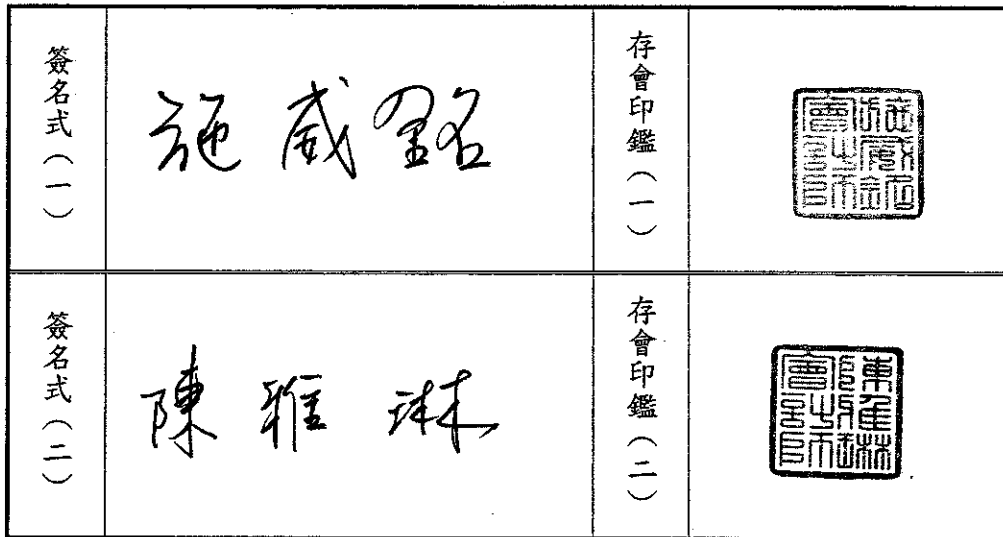 簽名式（一）
施威銘
存會印鑑（一）
施威銘會計師
簽名式（二）
陳雅琳
存會印鑑（二）
陳雅琳會計師